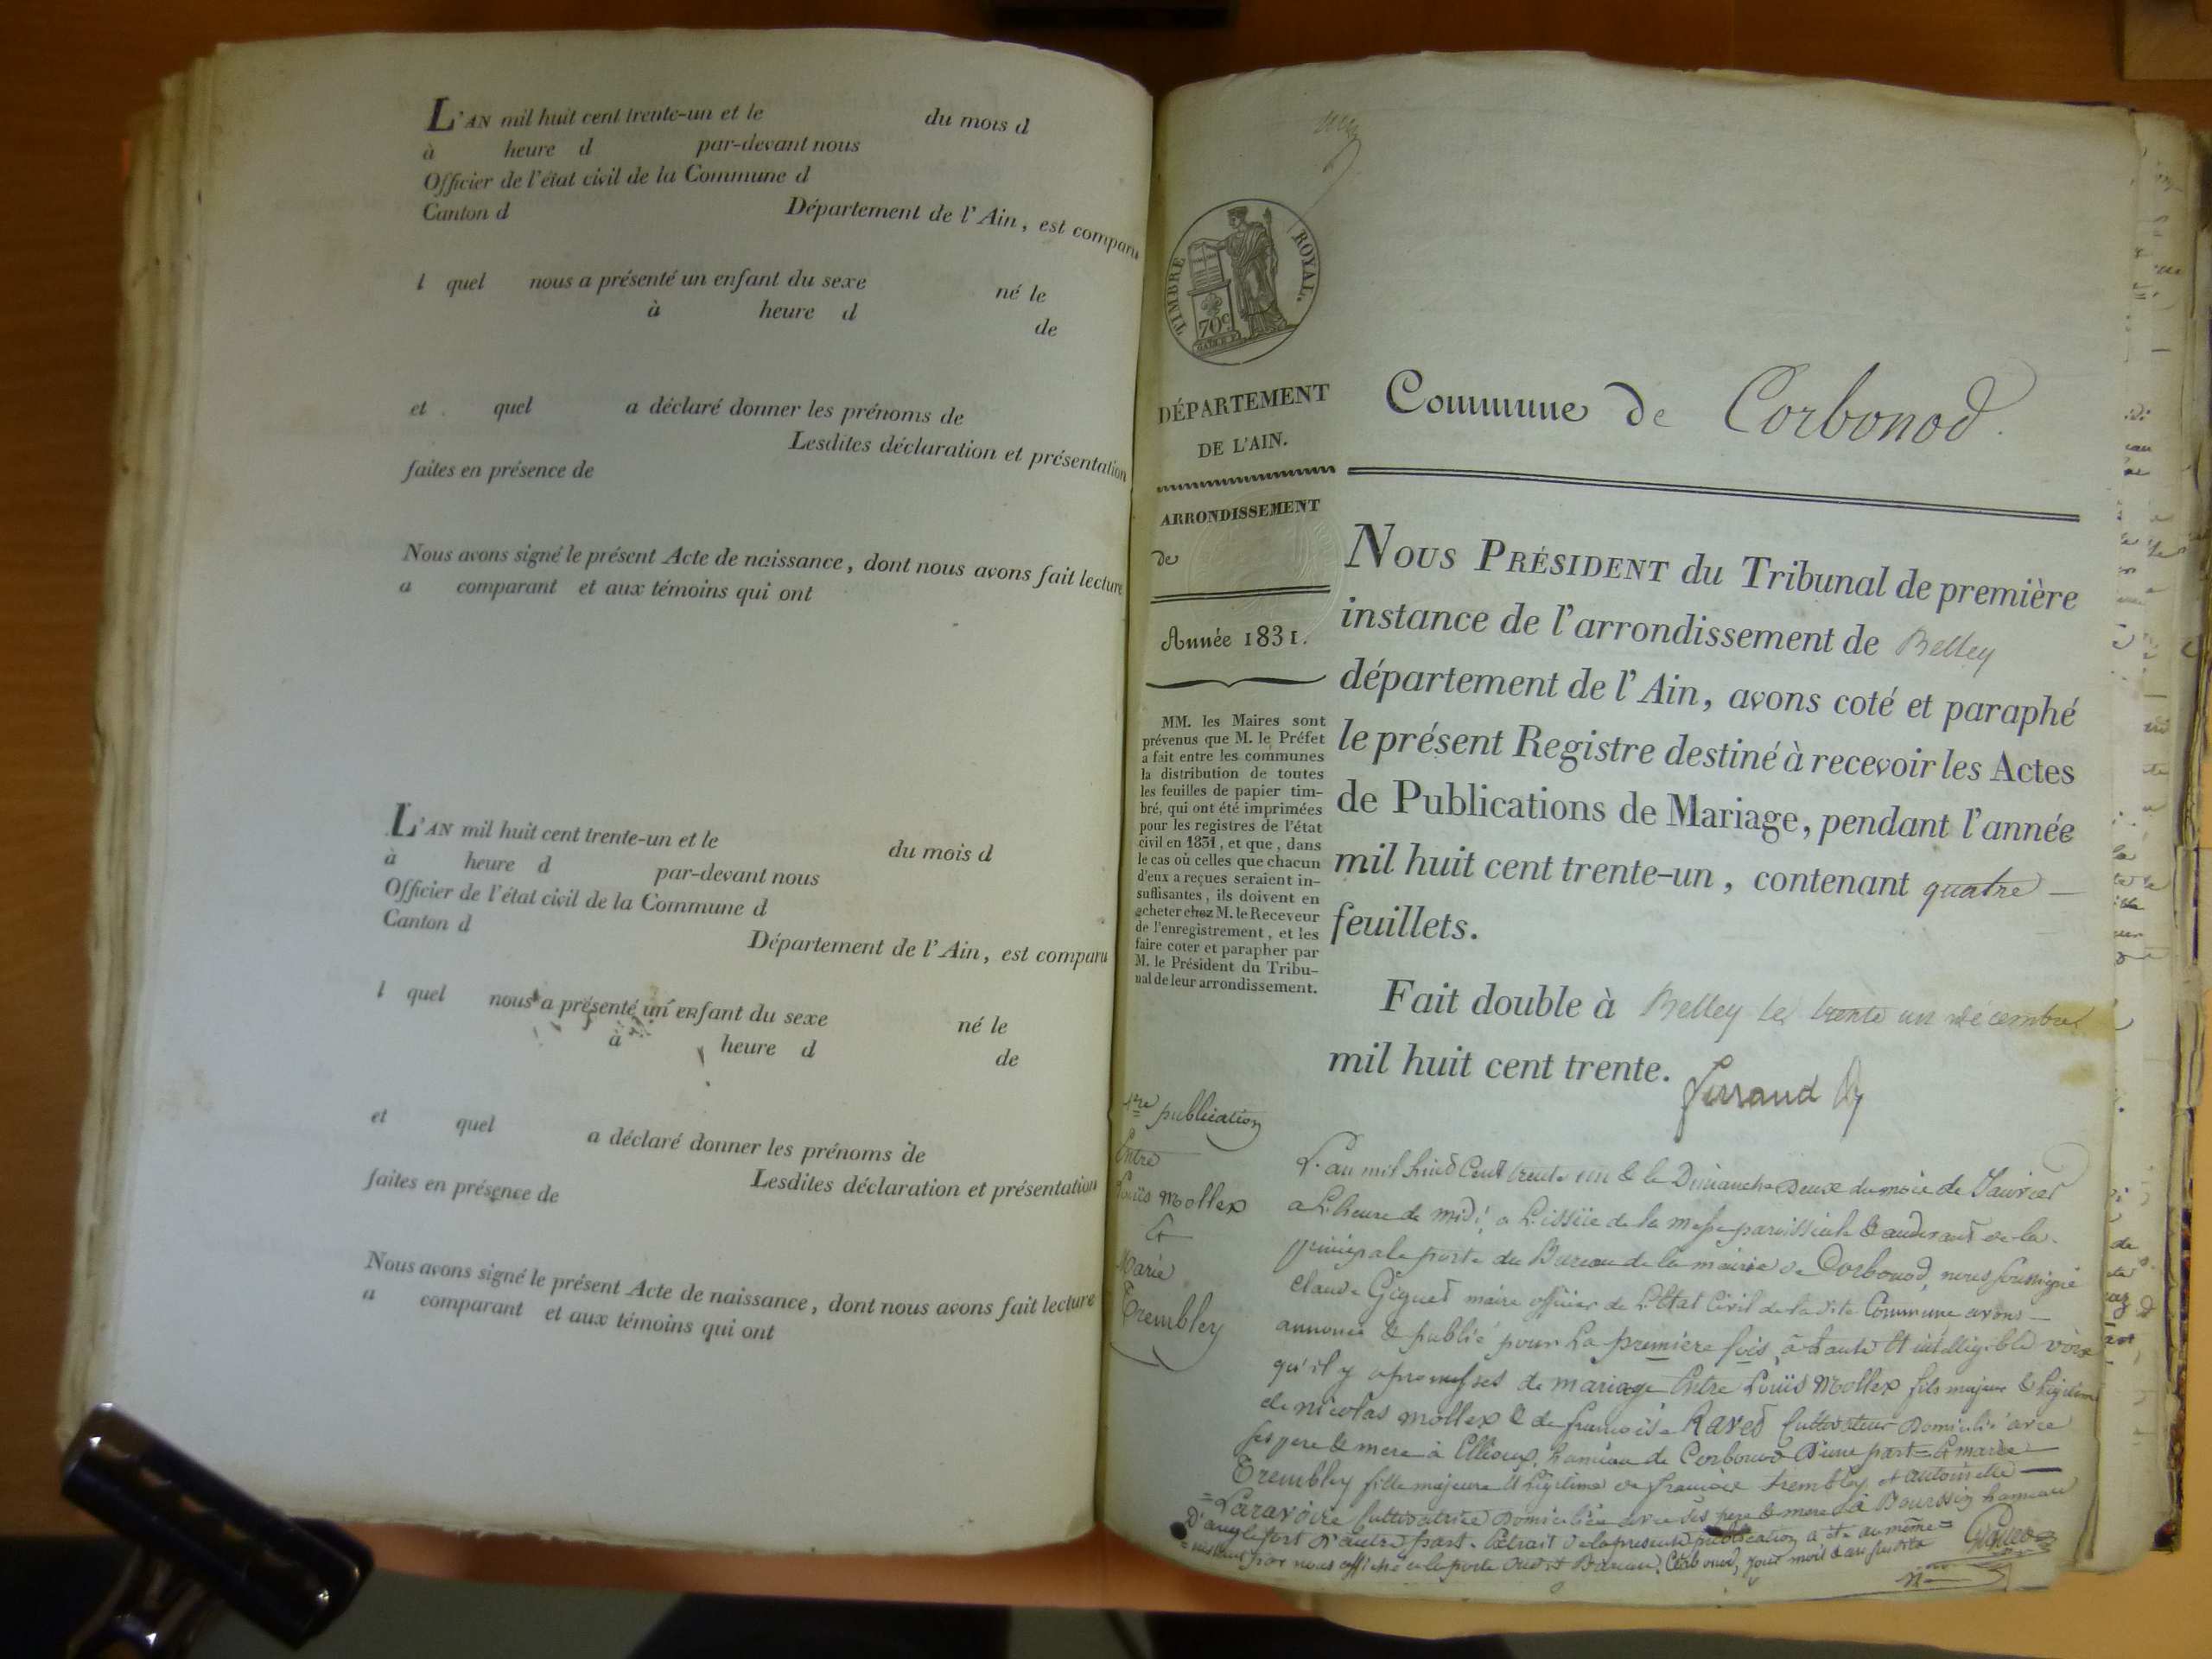 L'AN mil huit cent trente-un et le du mois d
à heure d par-devant nous
Officier de l'état civil de la Commune d
Canton d Département de l'Ain, est comparu
l quel nous a présenté un enfant du sexe né le
à heure d de
et quel a déclaré donner les prénoms de
Lesdites déclaration et présentation
faites en présence de
Nous avons signé le présent Acte de naissance, dont nous avons fait lecture
a comparant et aux témoins qui ont
L'AN mil huit cent trente-un et le du mois d
à heure d par-devant nous
Officier de l'état civil de la Commune d
Canton d Département de l'Ain, est comparu
l quel nous a présenté un enfant du sexe né le
à heure d de
et quel a déclaré donner les prénoms de
Lesdites déclaration et présentation
faites en présence de
Nous avons signé le présent Acte de naissance, dont nous avons fait lecture
a comparant et aux témoins qui ont
TIMBRE ROYAL.
70c
DÉPARTEMENT
DE L'AIN.
ARRONDISSEMENT
de
Année 1831.
MM. les Maires sont
prévenus que M. le Préfet
a fait entre les communes
la distribution de toutes
les feuilles de papier tim-
bré, qui ont été imprimées
pour les registres de l'état
civil en 1831, et que, dans
le cas où celles que chacun
d'eux a reçues seraient in-
suffisantes, ils doivent en
acheter chez M. le Receveur
de l'enregistrement, et les
faire coter et parapher par
M. le Président du Tribu-
nal de leur arrondissement.
Commune de Corbonod.
NOUS PRÉSIDENT du Tribunal de première
instance de l'arrondissement de Belley
département de l'Ain, avons coté et paraphé
le présent Registre destiné à recevoir les Actes
de Publications de Mariage, pendant l'année
mil huit cent trente-un, contenant quatre
feuillets.
Fait double à Belley le trente un décembre
mil huit cent trente.
1ere publication
Entre
Louis Mollex
Et
Marie
Trembley
L'an mil huit Cent trente un & le Dimanche Deux du mois de Janvier
a L'heure de midi, a L'issüe de la messe paroissiale & audevant de la
principale porte du Bureau de la mairie de Corbonod, nous soussigné
Claude Giguet maire officier de L'Etat Civil de la dite Commune avons
annoncé & publié pour La premiere fois, à haute Et intelligible voix
qu'il y a promesses de mariage Entre Louis Mollex fils majeur & légitime
de nicolas mollex & de françoise Ravet Cultivateur Domicilié avec
ses pere & mere à Ellioux, hameau de Corbonod D'une part = & marie
Trembley fille majeure Et Légitime de françois trembley et antoinette
= Laravoire Cultivatrice Domiciliée avec ses pere & mere à Boursin hameau
D'anglefort D'autre part. Extrait de la presente publication a été au même =
= instant par nous affiché à la porte dudit Bureau. Corbonod, jour mois & an susdits
Giguet